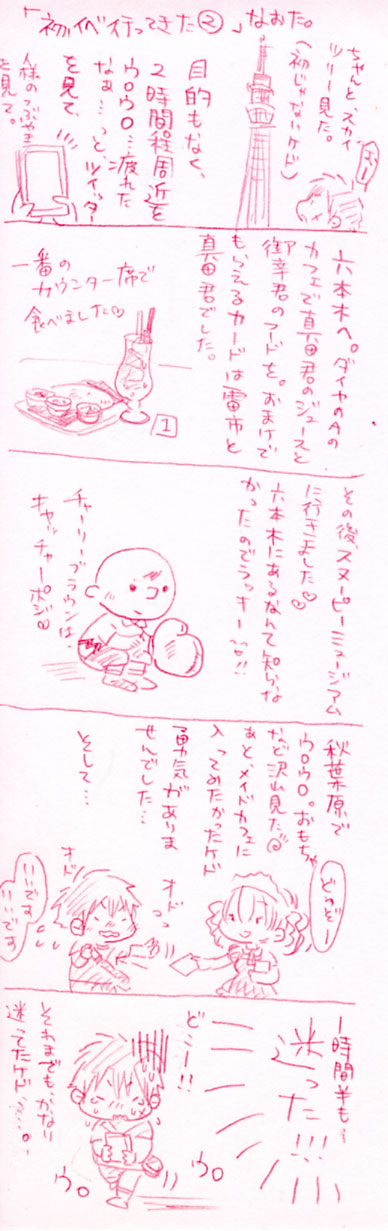 「初イベ行ってきた②」なおた。
ちゃんと、スカイ
ツリー見た。
(初じゃないケド)
目的もなく、
2時間程周辺を
ウロウロ…疲れた
なぁ…っと、ツイッター
を見て、
人様のつぶやき
を見て。
六本木へ。ダイヤのAの
カフェで真田君のジュースと
御幸君のフードを。おまけで
もらえるカードは雷市と
真田君でした。
一番の
カウンター席で
食べました♡
1
その後、スヌーピーミュージアム
に行きました♡
六本木にあるなんて知らな
かったのでラッキー…!!
チャーリーブラウンは、
キャッチャーポジ♡
秋葉原で
ウロウロ。おもちゃ
など沢山見た
あと、メイドカフェに
入ってみたかったケド
勇気がありま
せんでした…
そして…
どうぞー
オド
オドっっ
いいです
いいです
1時間半も…
迷った!!!
ど…!!
それまでも、かなり
迷ってたケド…。
ウロ
ウロ